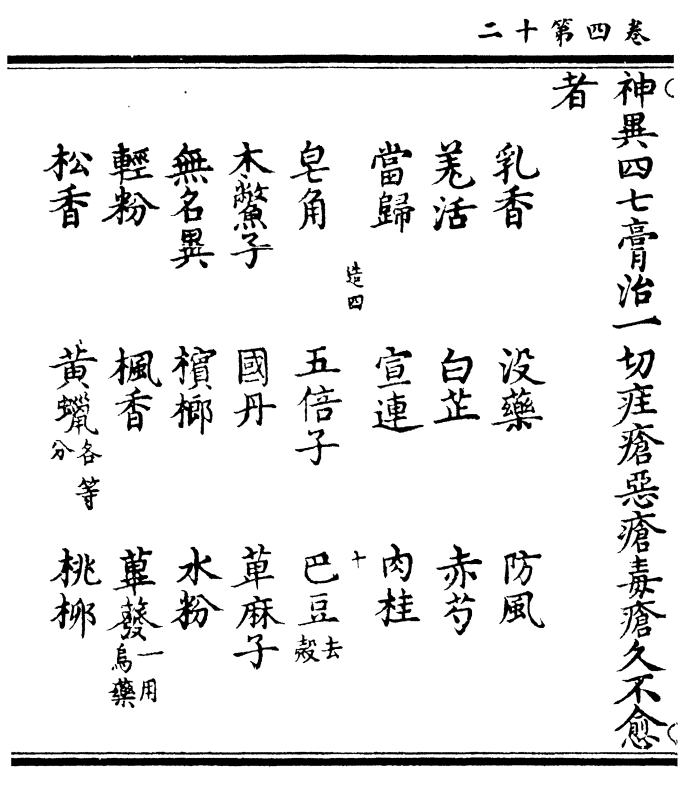 卷四第十二
神異四七膏治一切疰瘡惡瘡毒瘡久不愈
者
乳香 没藥 防風
羗活 白芷 赤芍
當歸 宣連 肉桂
造四 十
皂角 五倍子 巴豆去殼
木鱉子 國丹 萆麻子
無名異 檳榔 水粉
輕粉 楓香 蓽發一用烏藥
松香 黃蠟各等分 桃柳